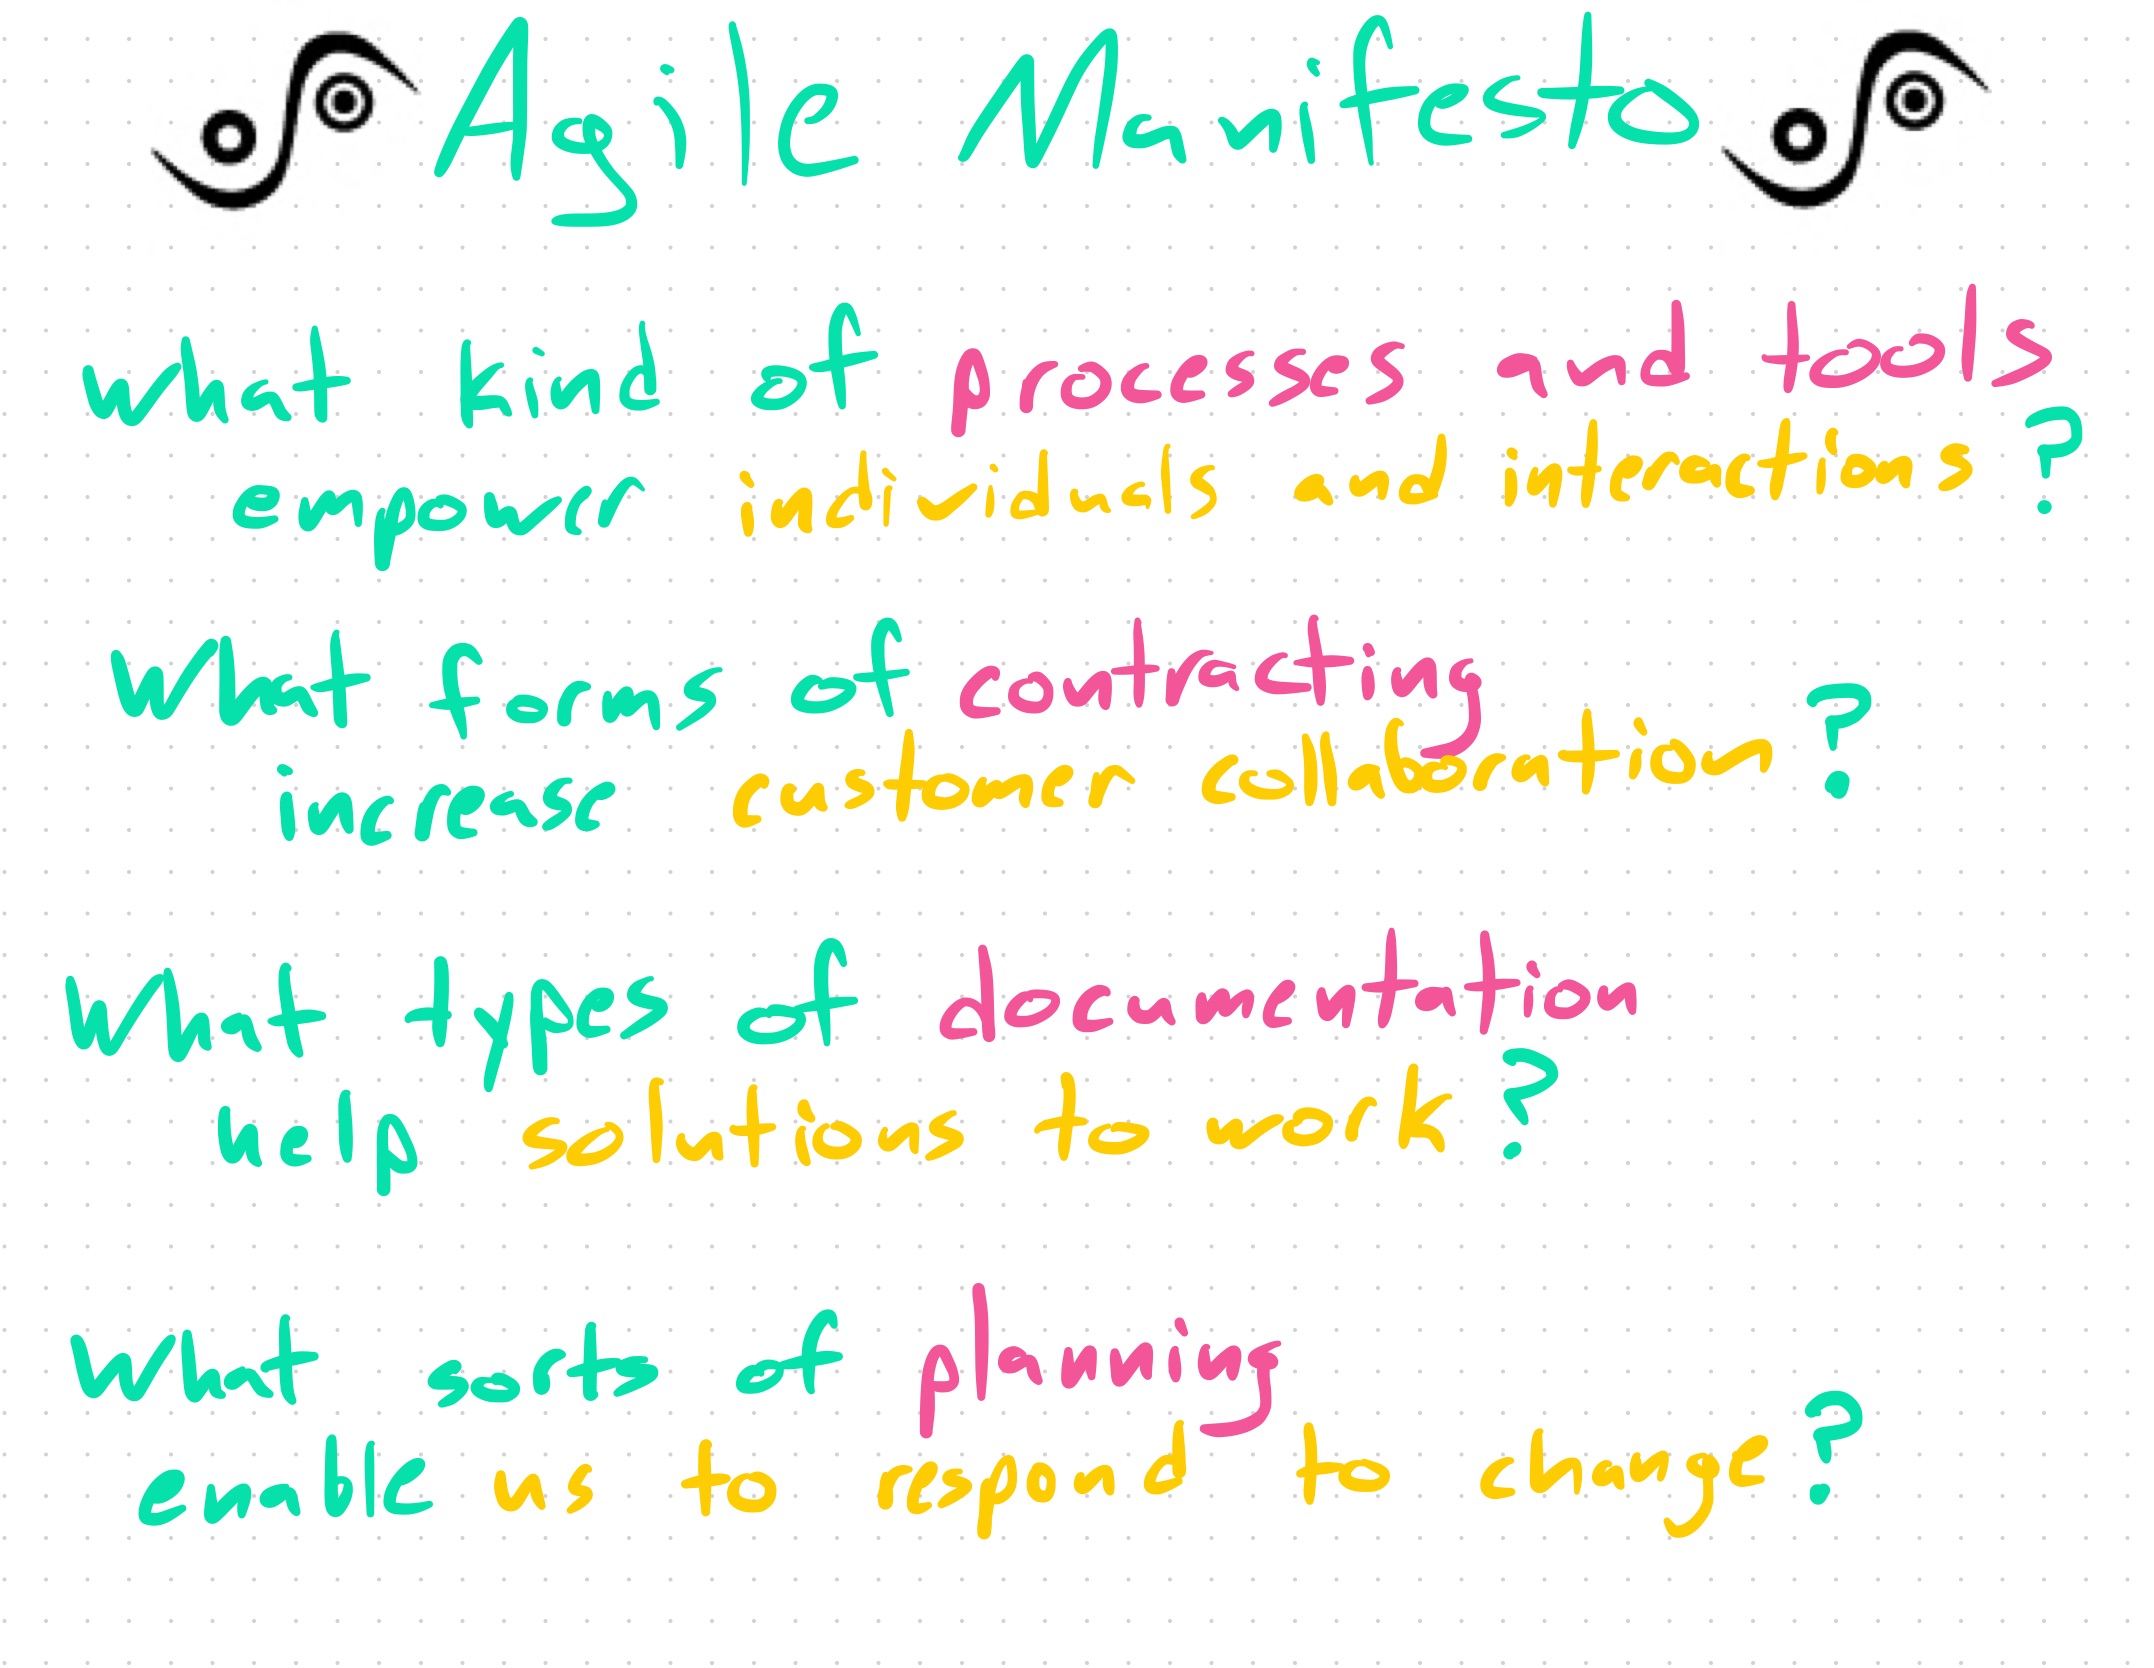 Agile Manifesto
What kind of processes and tools
empower individuals and interactions?
What forms of contracting
increase customer collaboration?
What types of documentation
help solutions to work?
What sorts of planning
enable us to respond to change?